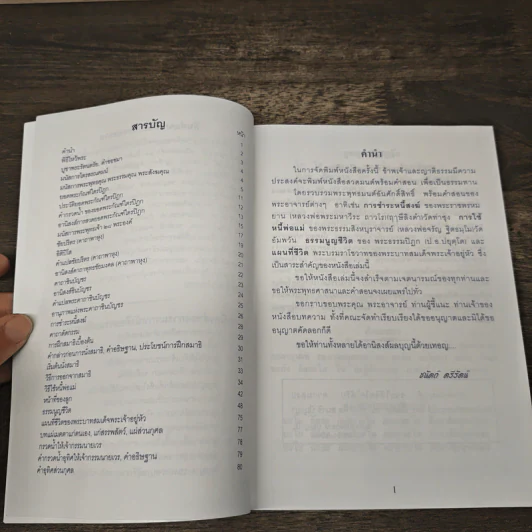 สารบัญ
หน้า
คำนำ 1
พิธีไหว้พระ 2
บูชาพระรัตนตรัย, คำขอขมา 3
นมัสการไตรสรณคมน์ 4
นมัสการพระพุทธคุณ พระธรรมคุณ พระสังฆคุณ
ยอดพระกัณฑ์ไตรปิฎก
ประวัติยอดพระกัณฑ์ไตรปิฎก
คำกรวดน้ำ ของยอดพระกัณฑ์ไตรปิฎก
อานิสงส์การสวดพระกัณฑ์ไตรปิฎก
นมัสการพระพุทธเจ้า ๒๘ พระองค์
อิติปิโส
คาถาชินบัญชร
อานิสงส์ชินบัญชร
คำแปลพระคาถาชินบัญชร
อานุภาพแห่งพระคาถาชินบัญชร
การชำระหนี้สงฆ์
การฝึกสมาธิเบื้องต้น
คำกล่าวก่อนการนั่งสมาธิ, คำอธิษฐาน, ประโยชน์การฝึกสมาธิ
เริ่มต้นนั่งสมาธิ
วิธีการออกจากสมาธิ
วิธีใช้หนี้พ่อแม่
หน้าที่ของลูก
ธรรมนูญชีวิต 48
แผนที่ชีวิตของพระบาทสมเด็จพระเจ้าอยู่หัว 75
บทแผ่เมตตาแก่ตนเอง, แก่สรรพสัตว์, แผ่ส่วนกุศล 77
กรวดน้ำให้เจ้ากรรมนายเวร 78
คำกรวดน้ำอุทิศให้เจ้ากรรมนายเวร, คำอธิษฐาน 79
คำอุทิศส่วนกุศล 80
คำนำ
ในการจัดพิมพ์หนังสือครั้งนี้ ข้าพเจ้าและญาติธรรมมีความ
ประสงค์จะพิมพ์หนังสือสวดมนต์พร้อมคำสอน เพื่อเป็นธรรมทาน
โดยรวบรวมพระพุทธมนต์อันศักดิ์สิทธิ์ พร้อมคำสอนของ
พระอาจารย์ต่างๆ อาทิเช่น การชำระหนี้สงฆ์ ของพระราชพรหม
ยาน (หลวงพ่อพระมหาวีระ ถาวโร)ฤาษีลิงดำวัดท่าซุง การใช้
หนี้พ่อแม่ ของพระธรรมสิงหบุราจารย์ (หลวงพ่อจรัญ ฐิตธมฺโม)วัด
อัมพวัน ธรรมนูญชีวิต ของ พระธรรมปิฎก (ป.อ.ปยุตฺโต) และ
แผนที่ชีวิต พระบรมราโชวาทของพระบาทสมเด็จพระเจ้าอยู่หัว ซึ่ง
เป็นสาระสำคัญของหนังสือเล่มนี้
ขอให้หนังสือเล่มนี้จงสำเร็จตามเจตนารมณ์ของทุกท่านและ
ขอให้พระพุทธศาสนาและคำสอนจงเผยแพร่ไปทั่ว
ขอกราบขอบพระคุณ พระอาจารย์ ท่านผู้ชี้แนะ ท่านเจ้าของ
หนังสือบทความ ทั้งที่คณะจัดทำเรียบเรียงได้ขออนุญาตและมิได้ขอ
อนุญาตคัดลอกก็ดี
ขอให้ท่านทั้งหลายได้อานิสงส์ผลบุญนี้ด้วยเทอญ...
1